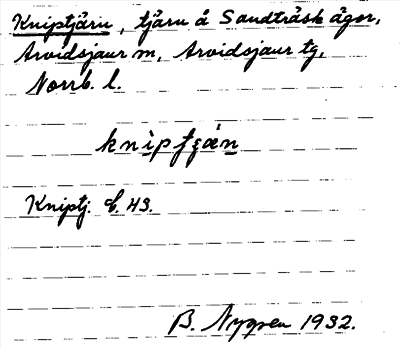 Kniptjärn, tjärn å Sandträsk ägor,
Arvidsjaur sn, Arvidsjaur tg,
Norrb. l.
Kniptj. C. 43.
B. Nygren 1932.